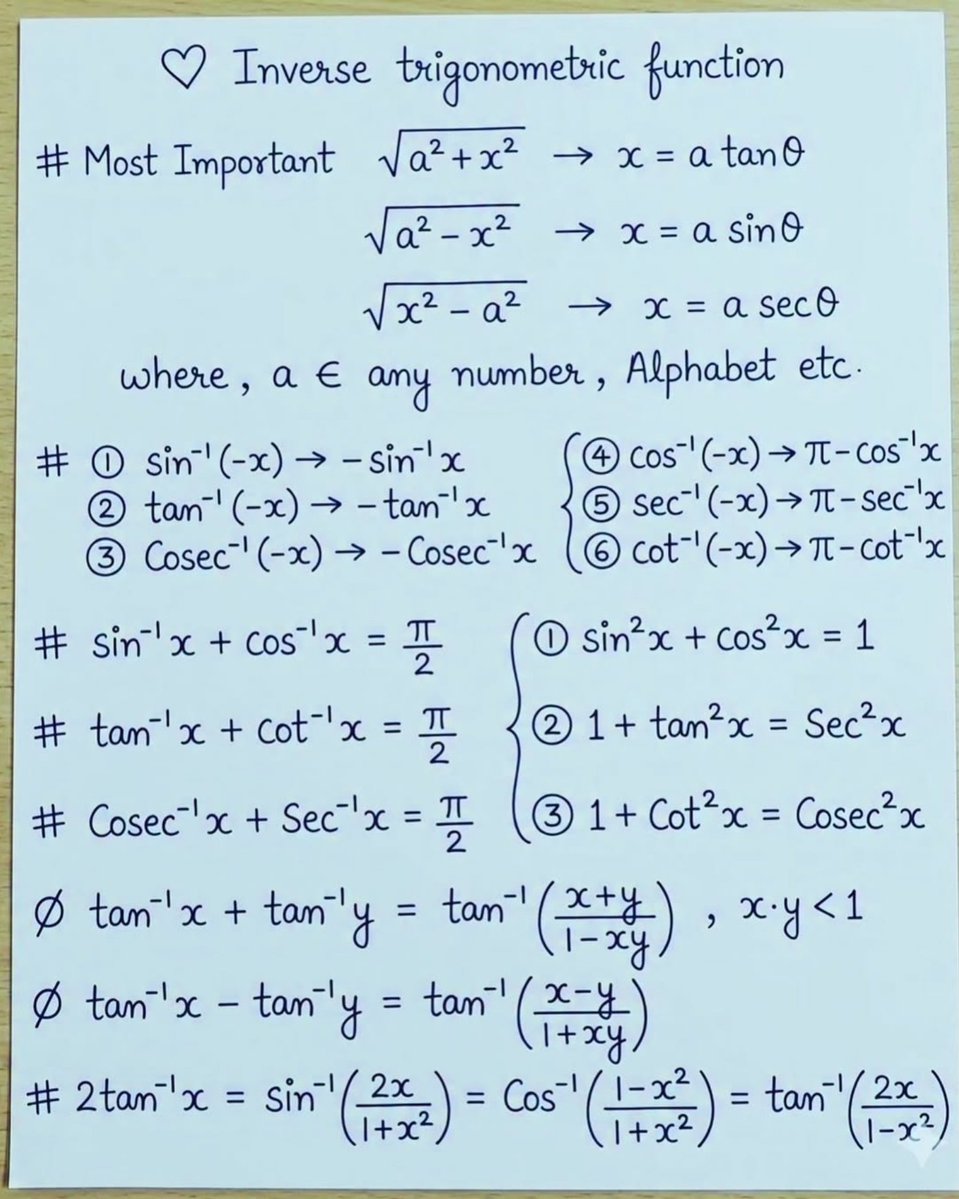 ♡ Inverse trigonometric function
# Most Important √(a² + x²) → x = a tanθ
√(a² − x²) → x = a sinθ
√(x² − a²) → x = a secθ
where, a ∈ any number, Alphabet etc.
# ① sin⁻¹(-x) → - sin⁻¹x
② tan⁻¹(-x) → - tan⁻¹x
③ Cosec⁻¹(-x) → - Cosec⁻¹x
④ cos⁻¹(-x) → π - cos⁻¹x
⑤ sec⁻¹(-x) → π - sec⁻¹x
⑥ cot⁻¹(-x) → π - cot⁻¹x
# sin⁻¹x + cos⁻¹x = π/2
# tan⁻¹x + cot⁻¹x = π/2
# Cosec⁻¹x + Sec⁻¹x = π/2
① sin²x + cos²x = 1
② 1 + tan²x = Sec²x
③ 1 + Cot²x = Cosec²x
∅ tan⁻¹x + tan⁻¹y = tan⁻¹((x+y)/(1-xy)) , x·y < 1
∅ tan⁻¹x - tan⁻¹y = tan⁻¹((x-y)/(1+xy))
# 2tan⁻¹x = sin⁻¹(2x/(1+x²)) = Cos⁻¹((1-x²)/(1+x²)) = tan⁻¹(2x/(1-x²))